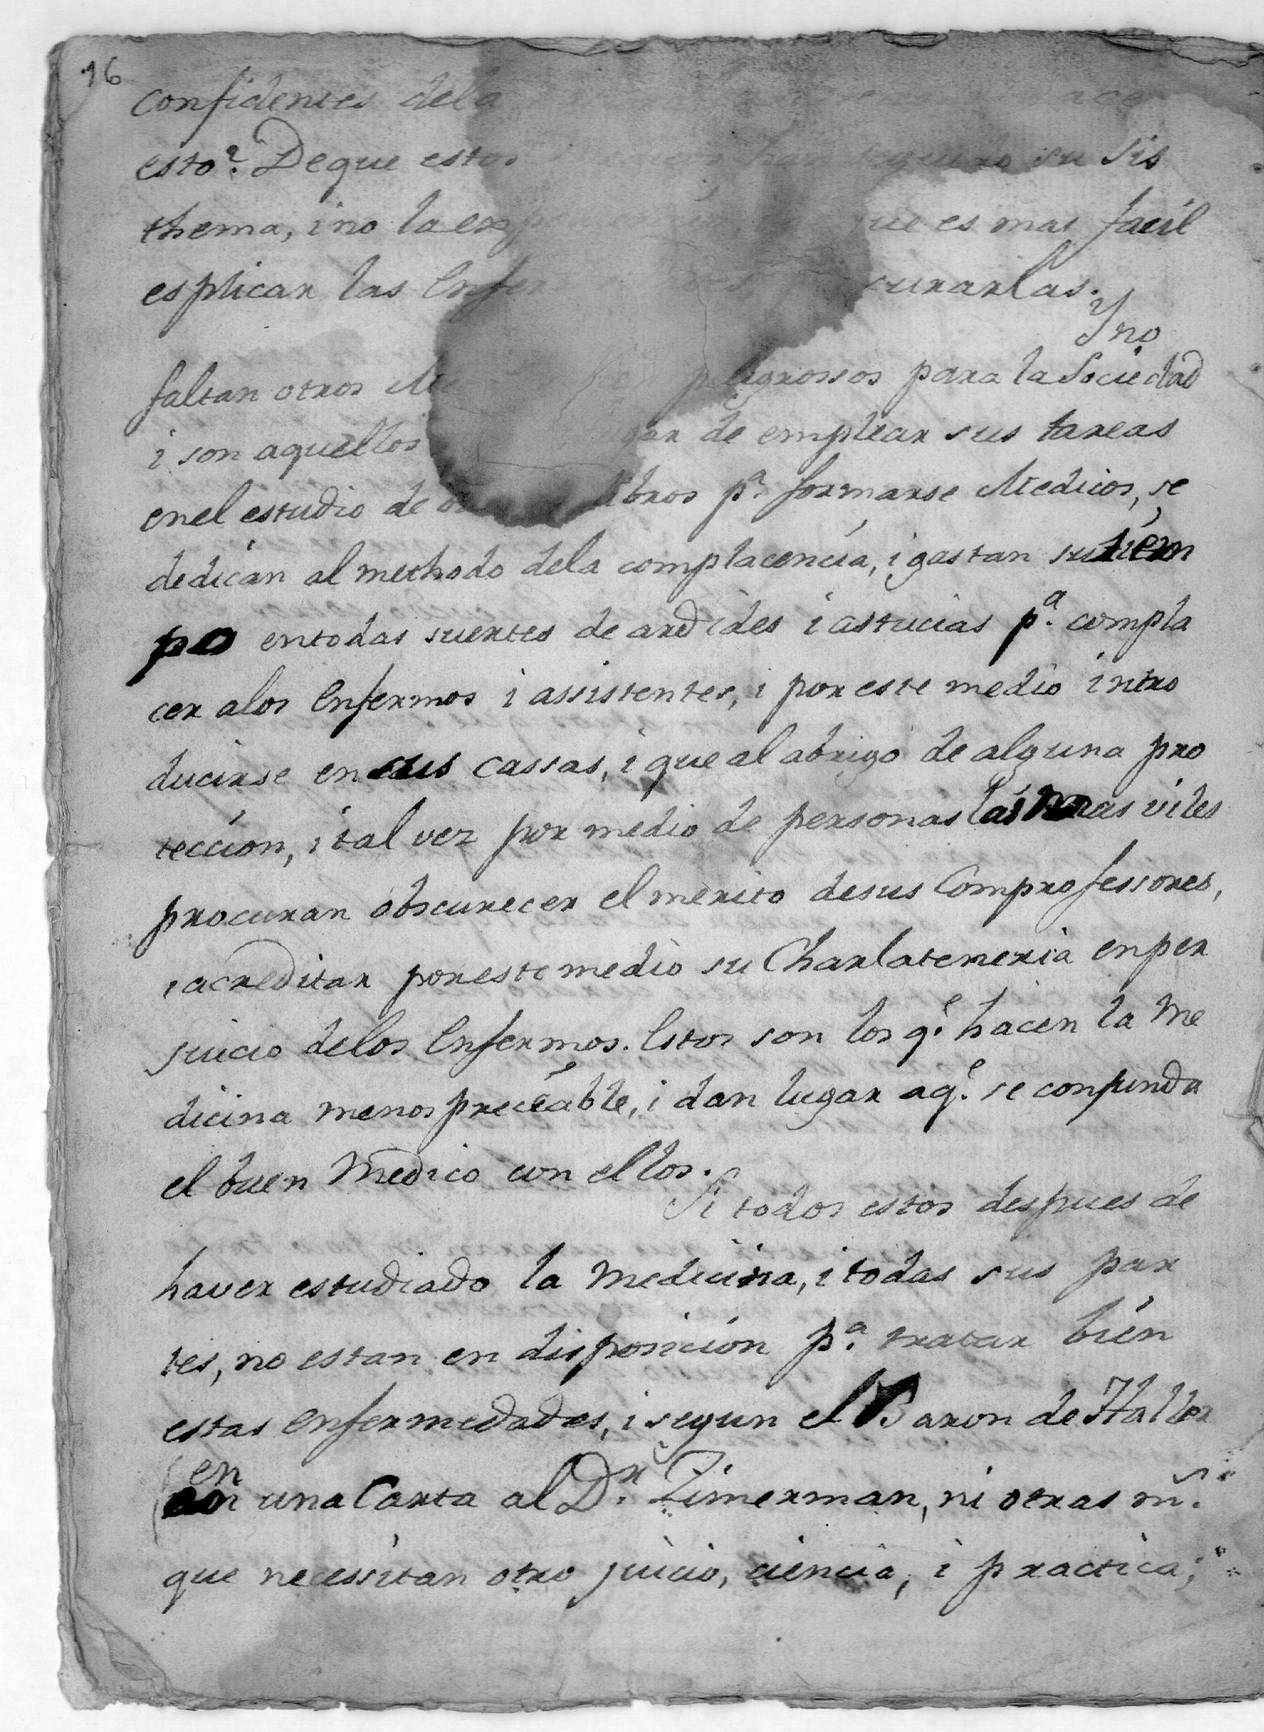 16
confidentes dela
esto? Deque estos su sis
thema, i no la que es mas facil
esplicar las Enfer curarlas.
Y no
faltan otros Me peligrossos para la Sociedad
i son aquellos de emplear sus tareas
enel estudio de libros pª. formarse Medicos, se
dedican al methodo dela complacencia, i gastan su tiem
po entodas suertes de ardides i astucias pª. compla
cer alos Enfermos i assistentes, i por este medio intro
ducirse en sus cassas, i que al abrigo de alguna pro
teccion, i tal vez por medio de personas las mas viles
procuran obscurecer el merito desus Comprofessores,
i acreditar poreste medio su Charlateneria enper
juicio delos Enfermos. Estos son los qᵉ. hacen la Me
dicina menospreceable, i dan lugar aqᵉ. se confunda
el buen Medico con ellos.
Si todos estos despues de
haver estudiado la Medicina, i todas sus par
tes, no estan en disposicion pª. tratar bien
estas enfermedades, i segun el Baron de Haller
en
una Carta al Dʳ. Zimerman, ni otras m̃.
que necessitan otro juicio, ciencia, i practica;